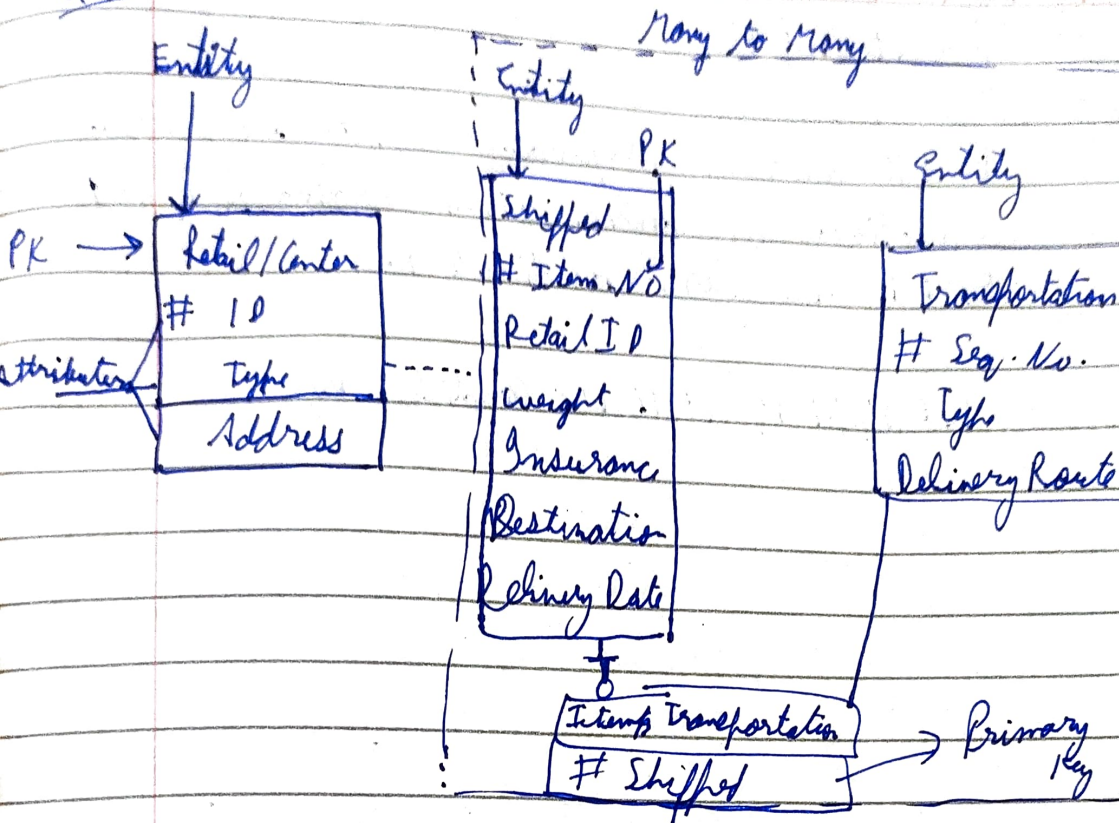 Many to Many
Entity
Entity
PK
Entity
PK
Retail/Center
# ID
Type
Address
attributes
Shipped
# Item.No
Retail ID
weight.
Insurance
Destination
Delivery Date
Transportation
# Seq. No.
Type
Delivery Route
Transportation
# Shipped
Primary
Key